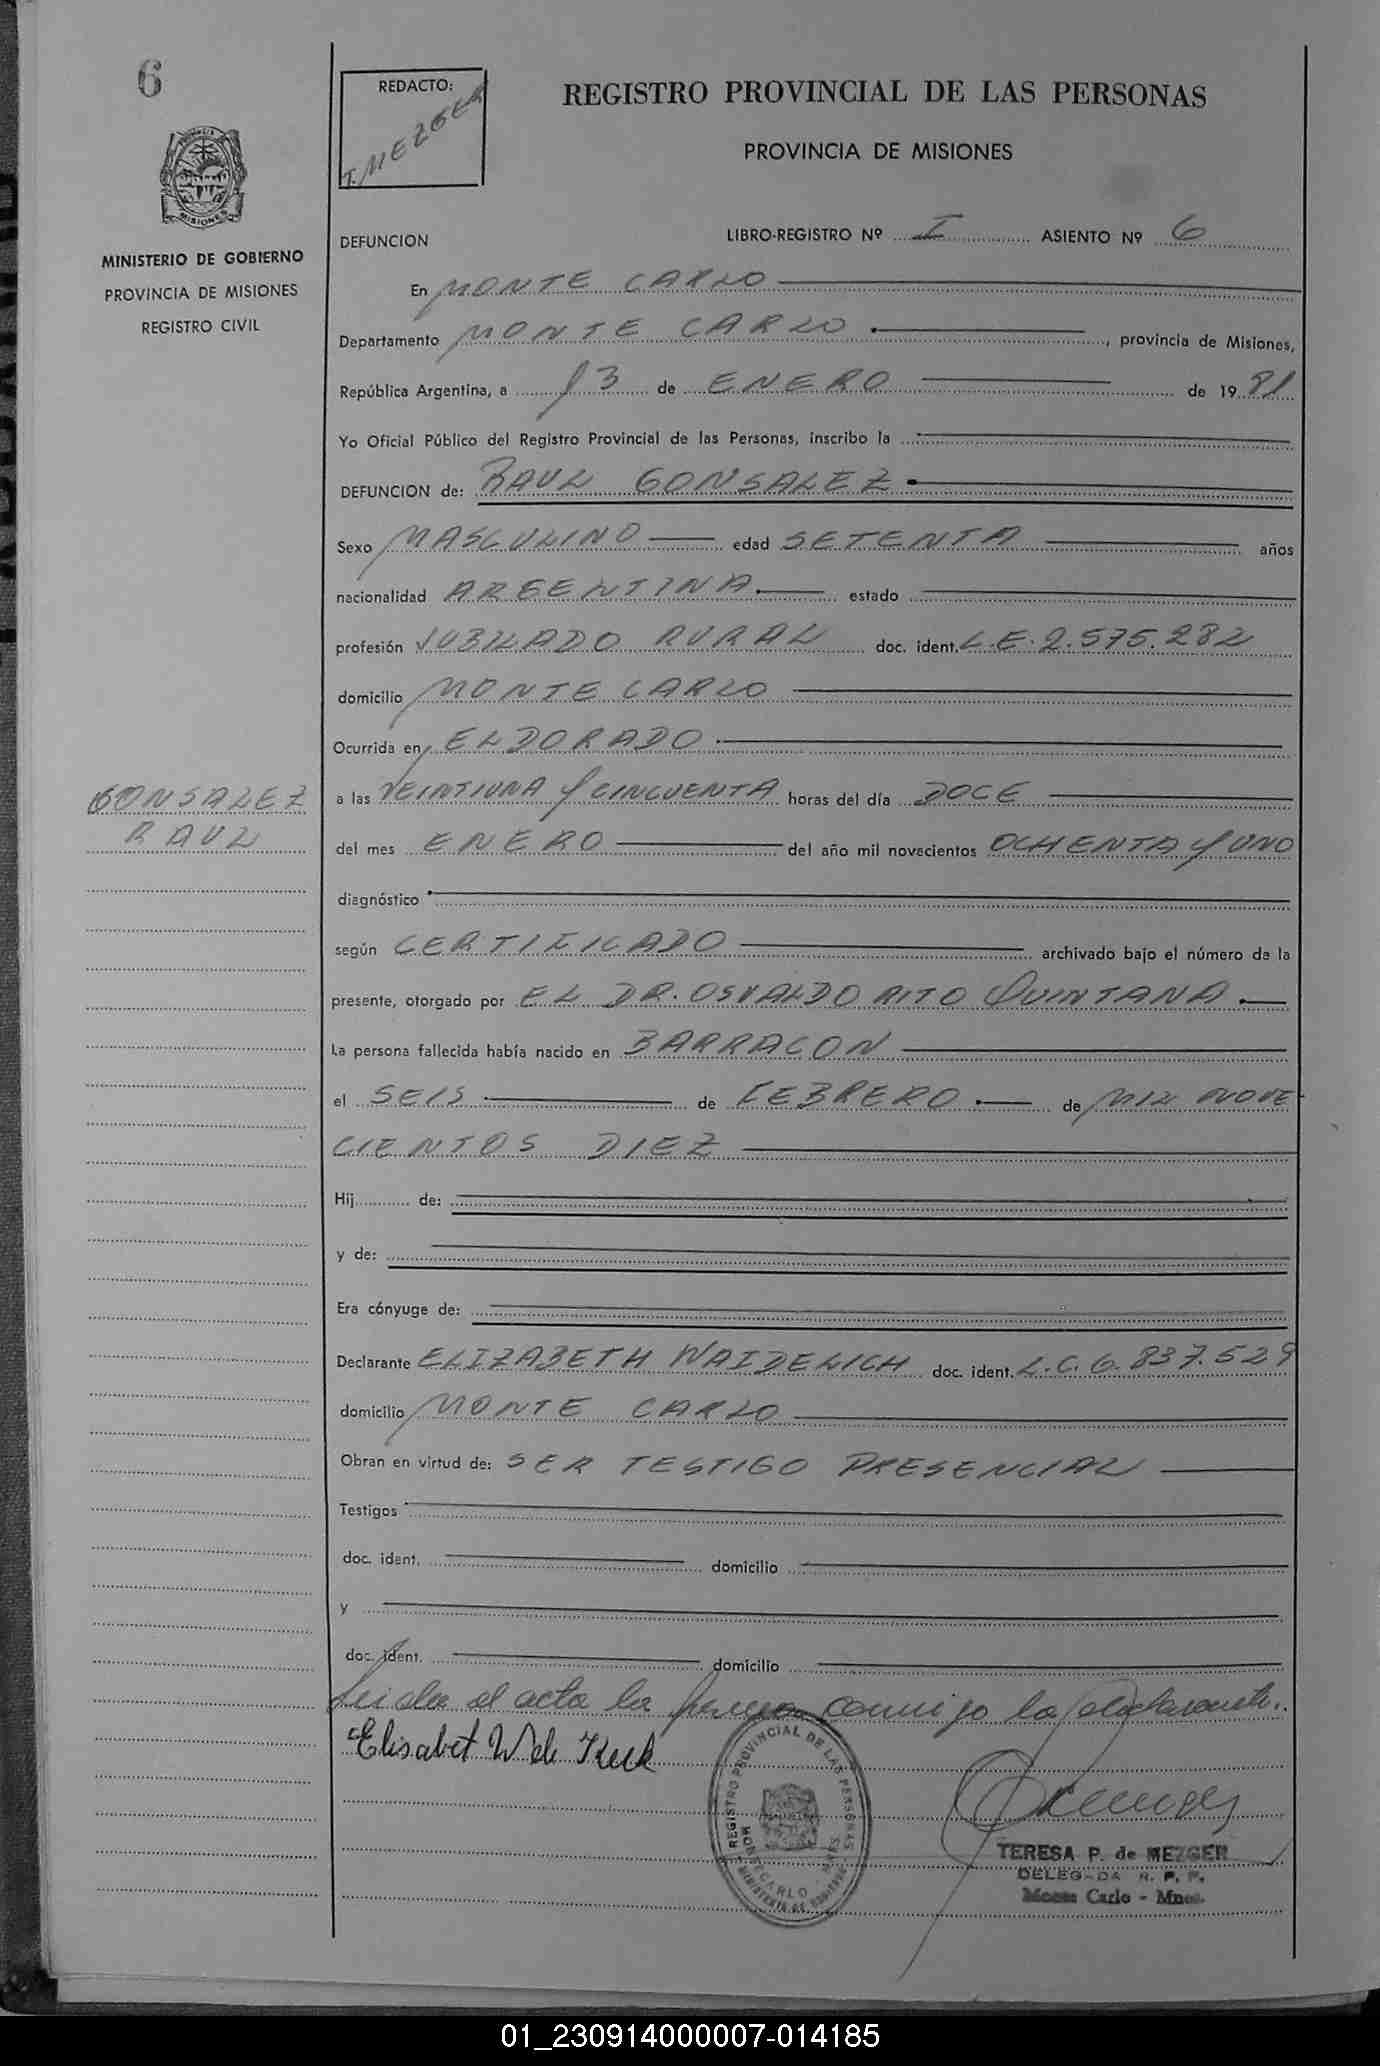 6
REDACTO:
T. MEZGER
REGISTRO PROVINCIAL DE LAS PERSONAS
PROVINCIA DE MISIONES
MISIONES
MINISTERIO DE GOBIERNO
PROVINCIA DE MISIONES
REGISTRO CIVIL
DEFUNCION LIBRO-REGISTRO Nº I ASIENTO Nº 6
En MONTE CARLO
Departamento MONTE CARLO, provincia de Misiones,
República Argentina, a 13 de ENERO de 1981
Yo Oficial Público del Registro Provincial de las Personas, inscribo la
DEFUNCION de: RAUL GONSALEZ
Sexo MASCULINO edad SETENTA años
nacionalidad ARGENTINA estado
profesión JUBILADO RURAL doc. ident. L.E. 2.575.282
domicilio MONTE CARLO
Ocurrida en ELDORADO
GONSALEZ
RAUL
a las VEINTIUNA Y CINCUENTA horas del día DOCE
del mes ENERO del año mil novecientos OCHENTA Y UNO
diagnóstico
según CERTIFICADO archivado bajo el número de la
presente, otorgado por EL DR. OSVALDO RITO QUINTANA
La persona fallecida había nacido en BARRACON
el SEIS de FEBRERO de MIL NOVE
CIENTOS DIEZ
Hij de:
y de:
Era cónyuge de:
Declarante ELIZABETH WAIDELICH doc. ident. L.C. 6.837.529
domicilio MONTE CARLO
Obran en virtud de: SER TESTIGO PRESENCIAL
Testigos
doc. ident. domicilio
y
doc. ident. domicilio
Leida el acta la firma conmigo la declarante.
Elisabet W de Keck
REGISTRO PROVINCIAL DE LAS PERSONAS
MONTECARLO - MNES
MINISTERIO DE GOBIERNO
TERESA P. de MEZGER
DELEGADA R. P. P.
Monte Carlo - Mnes.
01_230914000007-014185